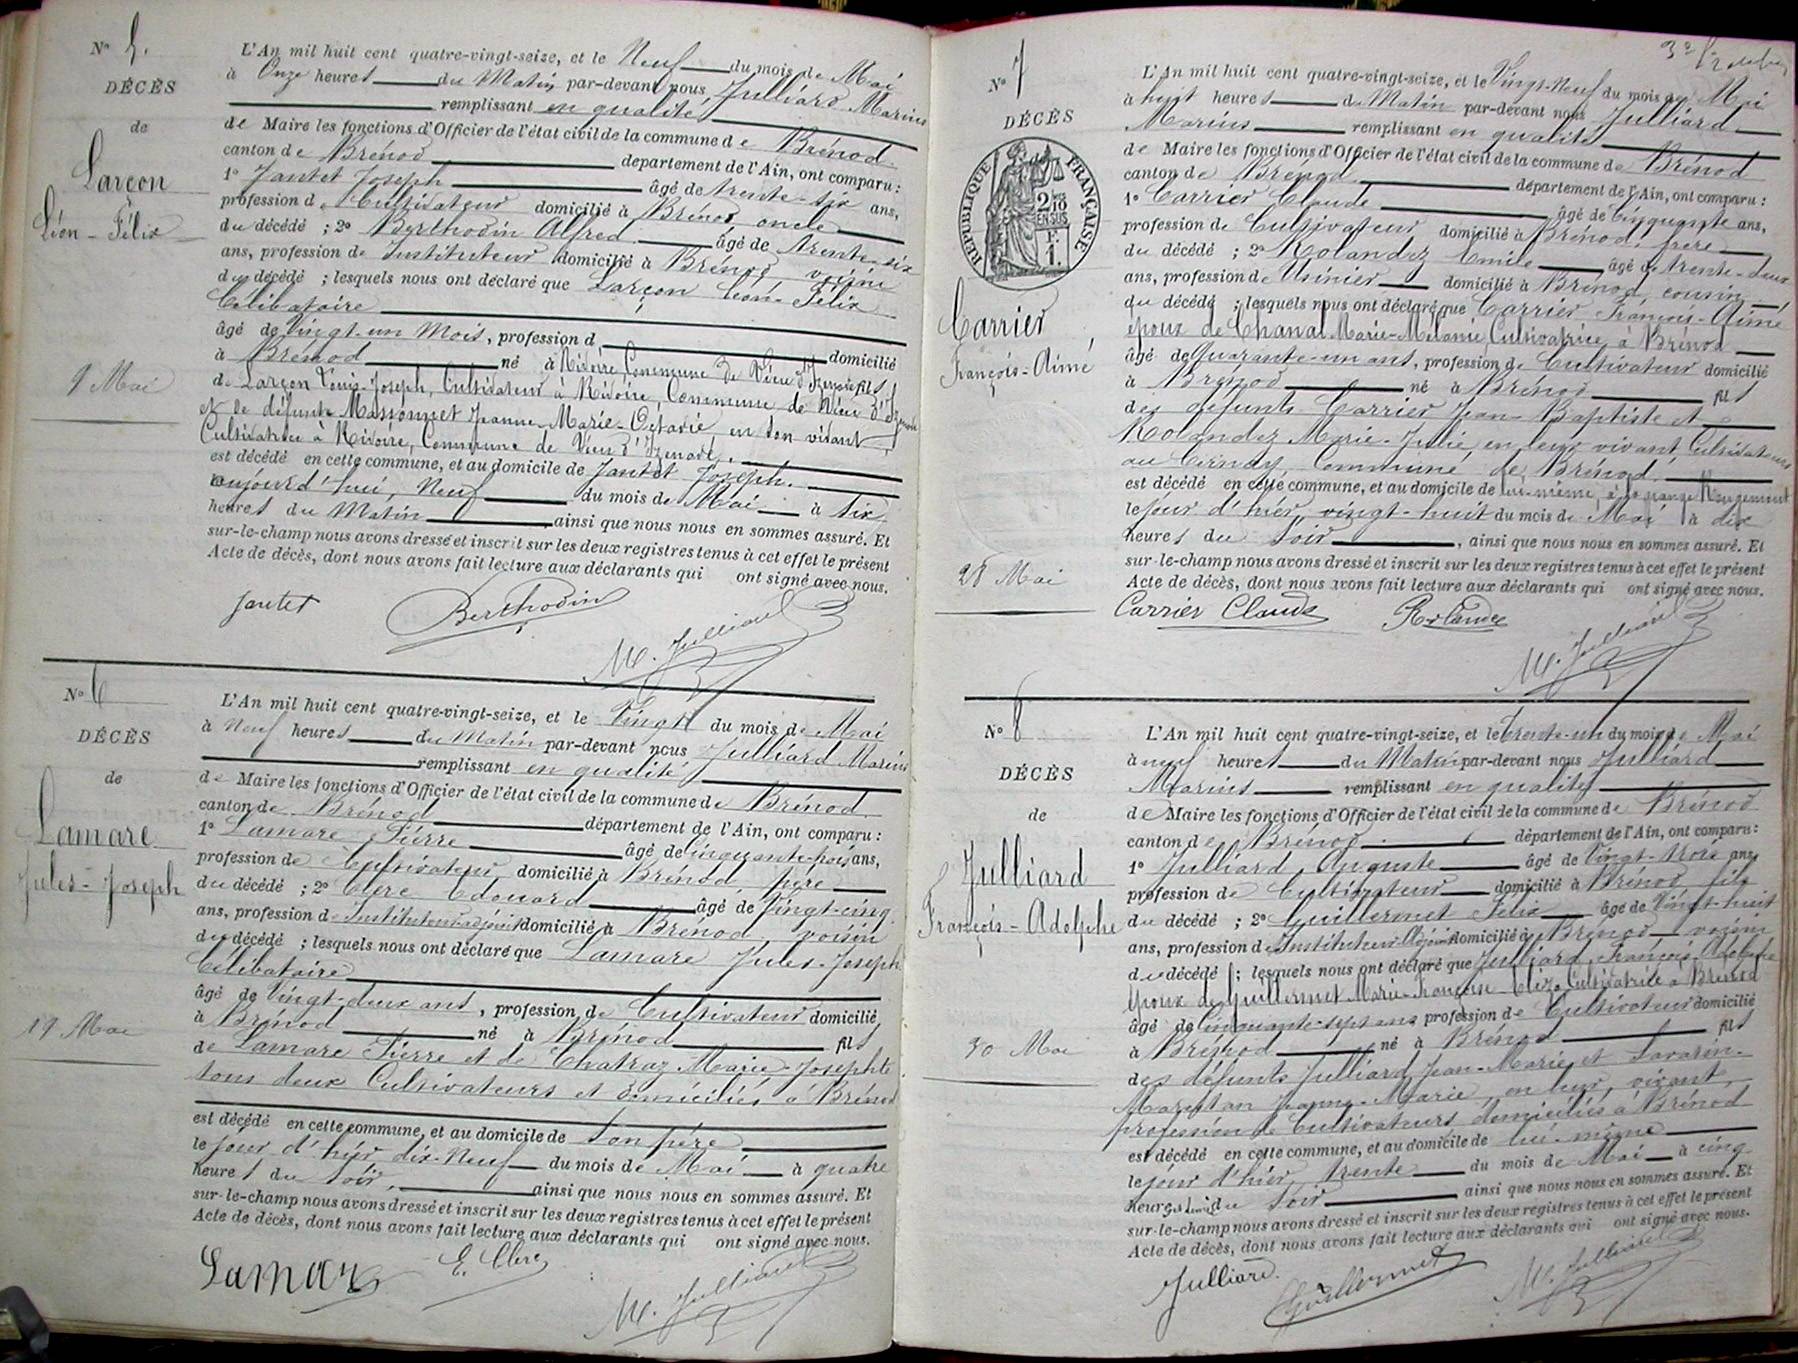 N° 5.
DÉCÈS
de
Larçon
Léon-Félix
9 Mai
L'An mil huit cent quatre-vingt-seize, et le Neuf du mois de Mai
à Onze heures du Matin par-devant nous Julliard Marius
remplissant en qualité
de Maire les fonctions d'Officier de l'état civil de la commune de Brénod
canton de Brénod département de l'Ain, ont comparu :
1° Jantet Joseph âgé de trente-six ans,
profession de Cultivateur domicilié à Brénod, oncle
du décédé ; 2° Berthodin Alfred âgé de trente-six
ans, profession de Instituteur domicilié à Brénod voisin
du décédé ; lesquels nous ont déclaré que Larçon Léon-Félix
Célibataire
âgé de Vingt-un Mois, profession d domicilié
à Brénod né à Ridoire Commune de Vieu d'Izenave fils
de Larçon Louis-Joseph, Cultivateur à Ridoire, Commune de Vieu d'Izenave
et de défunte Massonnet Jeanne-Marie-Octavie, en son vivant
Cultivatrice à Ridoire, Commune de Vieu d'Izenave.
est décédé en cette commune, et au domicile de Jantet Joseph.
aujourd'hui, Neuf du mois de Mai à six
heures du Matin ainsi que nous nous en sommes assuré. Et
sur-le-champ nous avons dressé et inscrit sur les deux registres tenus à cet effet le présent
Acte de décès, dont nous avons fait lecture aux déclarants qui ont signé avec nous.
Jantet Berthodin
M. Julliard
N° 6
DÉCÈS
de
Lamare
Jules-Joseph
19 Mai
L'An mil huit cent quatre-vingt-seize, et le Vingt du mois de Mai
à Neuf heures du Matin par-devant nous Julliard Marius
remplissant en qualité
de Maire les fonctions d'Officier de l'état civil de la commune de Brénod
canton de Brénod département de l'Ain, ont comparu :
1° Lamare Pierre âgé de Cinquante-trois ans,
profession de Cultivateur domicilié à Brénod, père
du décédé ; 2° Clerc Edouard âgé de Vingt-cinq
ans, profession d'Instituteur-adjoint domicilié à Brénod voisin
du décédé ; lesquels nous ont déclaré que Lamare Jules-Joseph
Célibataire
âgé de Vingt-deux ans, profession de Cultivateur domicilié
à Brénod né à Brénod fils
de Lamare Pierre et de Chatraz Marie-Josephte
tous deux Cultivateurs et domiciliés à Brénod
est décédé en cette commune, et au domicile de Son père
le jour d'hier dix-Neuf du mois de Mai à quatre
heures du Soir, ainsi que nous nous en sommes assuré. Et
sur-le-champ nous avons dressé et inscrit sur les deux registres tenus à cet effet le présent
Acte de décès, dont nous avons fait lecture aux déclarants qui ont signé avec nous.
Lamare E. Clerc
M. Julliard
N° 7
DÉCÈS
RÉPUBLIQUE FRANÇAISE
2/10 EN SUS
F.
1.
Carrier
François-Aimé
28 Mai
L'An mil huit cent quatre-vingt-seize, et le Vingt-Neuf du mois de Mai
à huit heures du Matin par-devant nous Julliard
Marius remplissant en qualité
de Maire les fonctions d'Officier de l'état civil de la commune de Brénod
canton de Brénod département de l'Ain, ont comparu :
1° Carrier Claude âgé de Cinquante ans,
profession de Cultivateur domicilié à Brénod, frère
du décédé ; 2° Rolandez Emile âgé de trente-deux
ans, profession de Usinier domicilié à Brénod cousin
du décédé ; lesquels nous ont déclaré que Carrier François-Aimé
époux de Chanal Marie-Mélanie Cultivatrice à Brénod
âgé de Quarante-un ans, profession de Cultivateur domicilié
à Brénod né à Brénod fils
des défunts Carrier Jean-Baptiste et
Rolandez Marie-Julie en leur vivant Cultivateurs
au Cernay, Commune de Brénod.
est décédé en cette commune, et au domicile de lui-même, à la grange Rougemont
le jour d'hier, vingt-huit du mois de Mai à dix
heures du Soir, ainsi que nous nous en sommes assuré. Et
sur-le-champ nous avons dressé et inscrit sur les deux registres tenus à cet effet le présent
Acte de décès, dont nous avons fait lecture aux déclarants qui ont signé avec nous.
Carrier Claude Rolandez
M. Julliard
N° 8
DÉCÈS
de
Julliard
François-Adolphe
30 Mai
L'An mil huit cent quatre-vingt-seize, et le trente-un du mois de Mai
à neuf heures du Matin par-devant nous Julliard
Marius remplissant en qualité
de Maire les fonctions d'Officier de l'état civil de la commune de Brénod
canton de Brénod département de l'Ain, ont comparu :
1° Julliard Auguste âgé de Vingt-trois ans,
profession de Cultivateur domicilié à Brénod fils
du décédé ; 2° Guillermet Félix âgé de Vingt-huit
ans, profession d'Instituteur Adjoint domicilié à Brénod voisin
du décédé ; lesquels nous ont déclaré que Julliard François-Adolphe
époux de Guillermet Marie-Françoise-Eliza Cultivatrice à Brénod
âgé de Cinquante-sept ans profession de Cultivateur domicilié
à Brénod né à Brénod fils
des défunts Julliard Jean-Marie et Savarin-
Marestan Jeanne-Marie, en leur vivant,
profession de Cultivateurs domiciliés à Brénod
est décédé en cette commune, et au domicile de lui-même
le jour d'hier trente du mois de Mai à cinq
heures du Soir ainsi que nous nous en sommes assuré. Et
sur-le-champ nous avons dressé et inscrit sur les deux registres tenus à cet effet le présent
Acte de décès, dont nous avons fait lecture aux déclarants qui ont signé avec nous.
Julliard Guillermet
M. Julliard